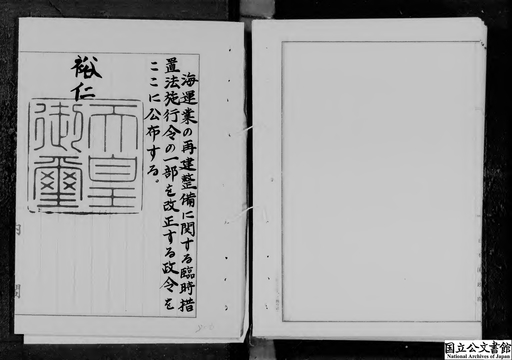 海運業の再建整備に関する臨時措
置法施行令の一部を改正する政令を
ここに公布する。
裕仁
天皇
御璽
国立公文書館
National Archives of Japan